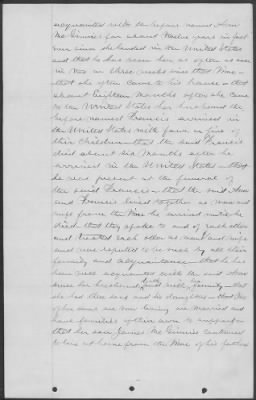 acquainted with the before named Ann
Mc Ginnis for about twelve years in fact
ever since she landed in the United States
and that he has seen her as often as once
in two or three weeks since that time –
that she often came to his house – that
about Eighteen months after she came
to the United States her husband the
before named Francis arrived in
the United States with four or five of
their children – that the said Francis
died about six months after he
arrived in the United States – that
he was present at the funeral of
the said Francis – that the said Ann
and Francis lived together as man and
wife from the time he arrived until he
died – that they spoke to and of each other
and treated each other as man and wife
and were reputed to be such by all their
family and acquaintance – that he has
been well acquainted with the said Ann
since her husband's death and with her family – that
she had three sons and six daughters – that two
of her sons are now living are married and
have families of their own to support –
that her son James Mc Ginnis continued
to live at home from the time of his father